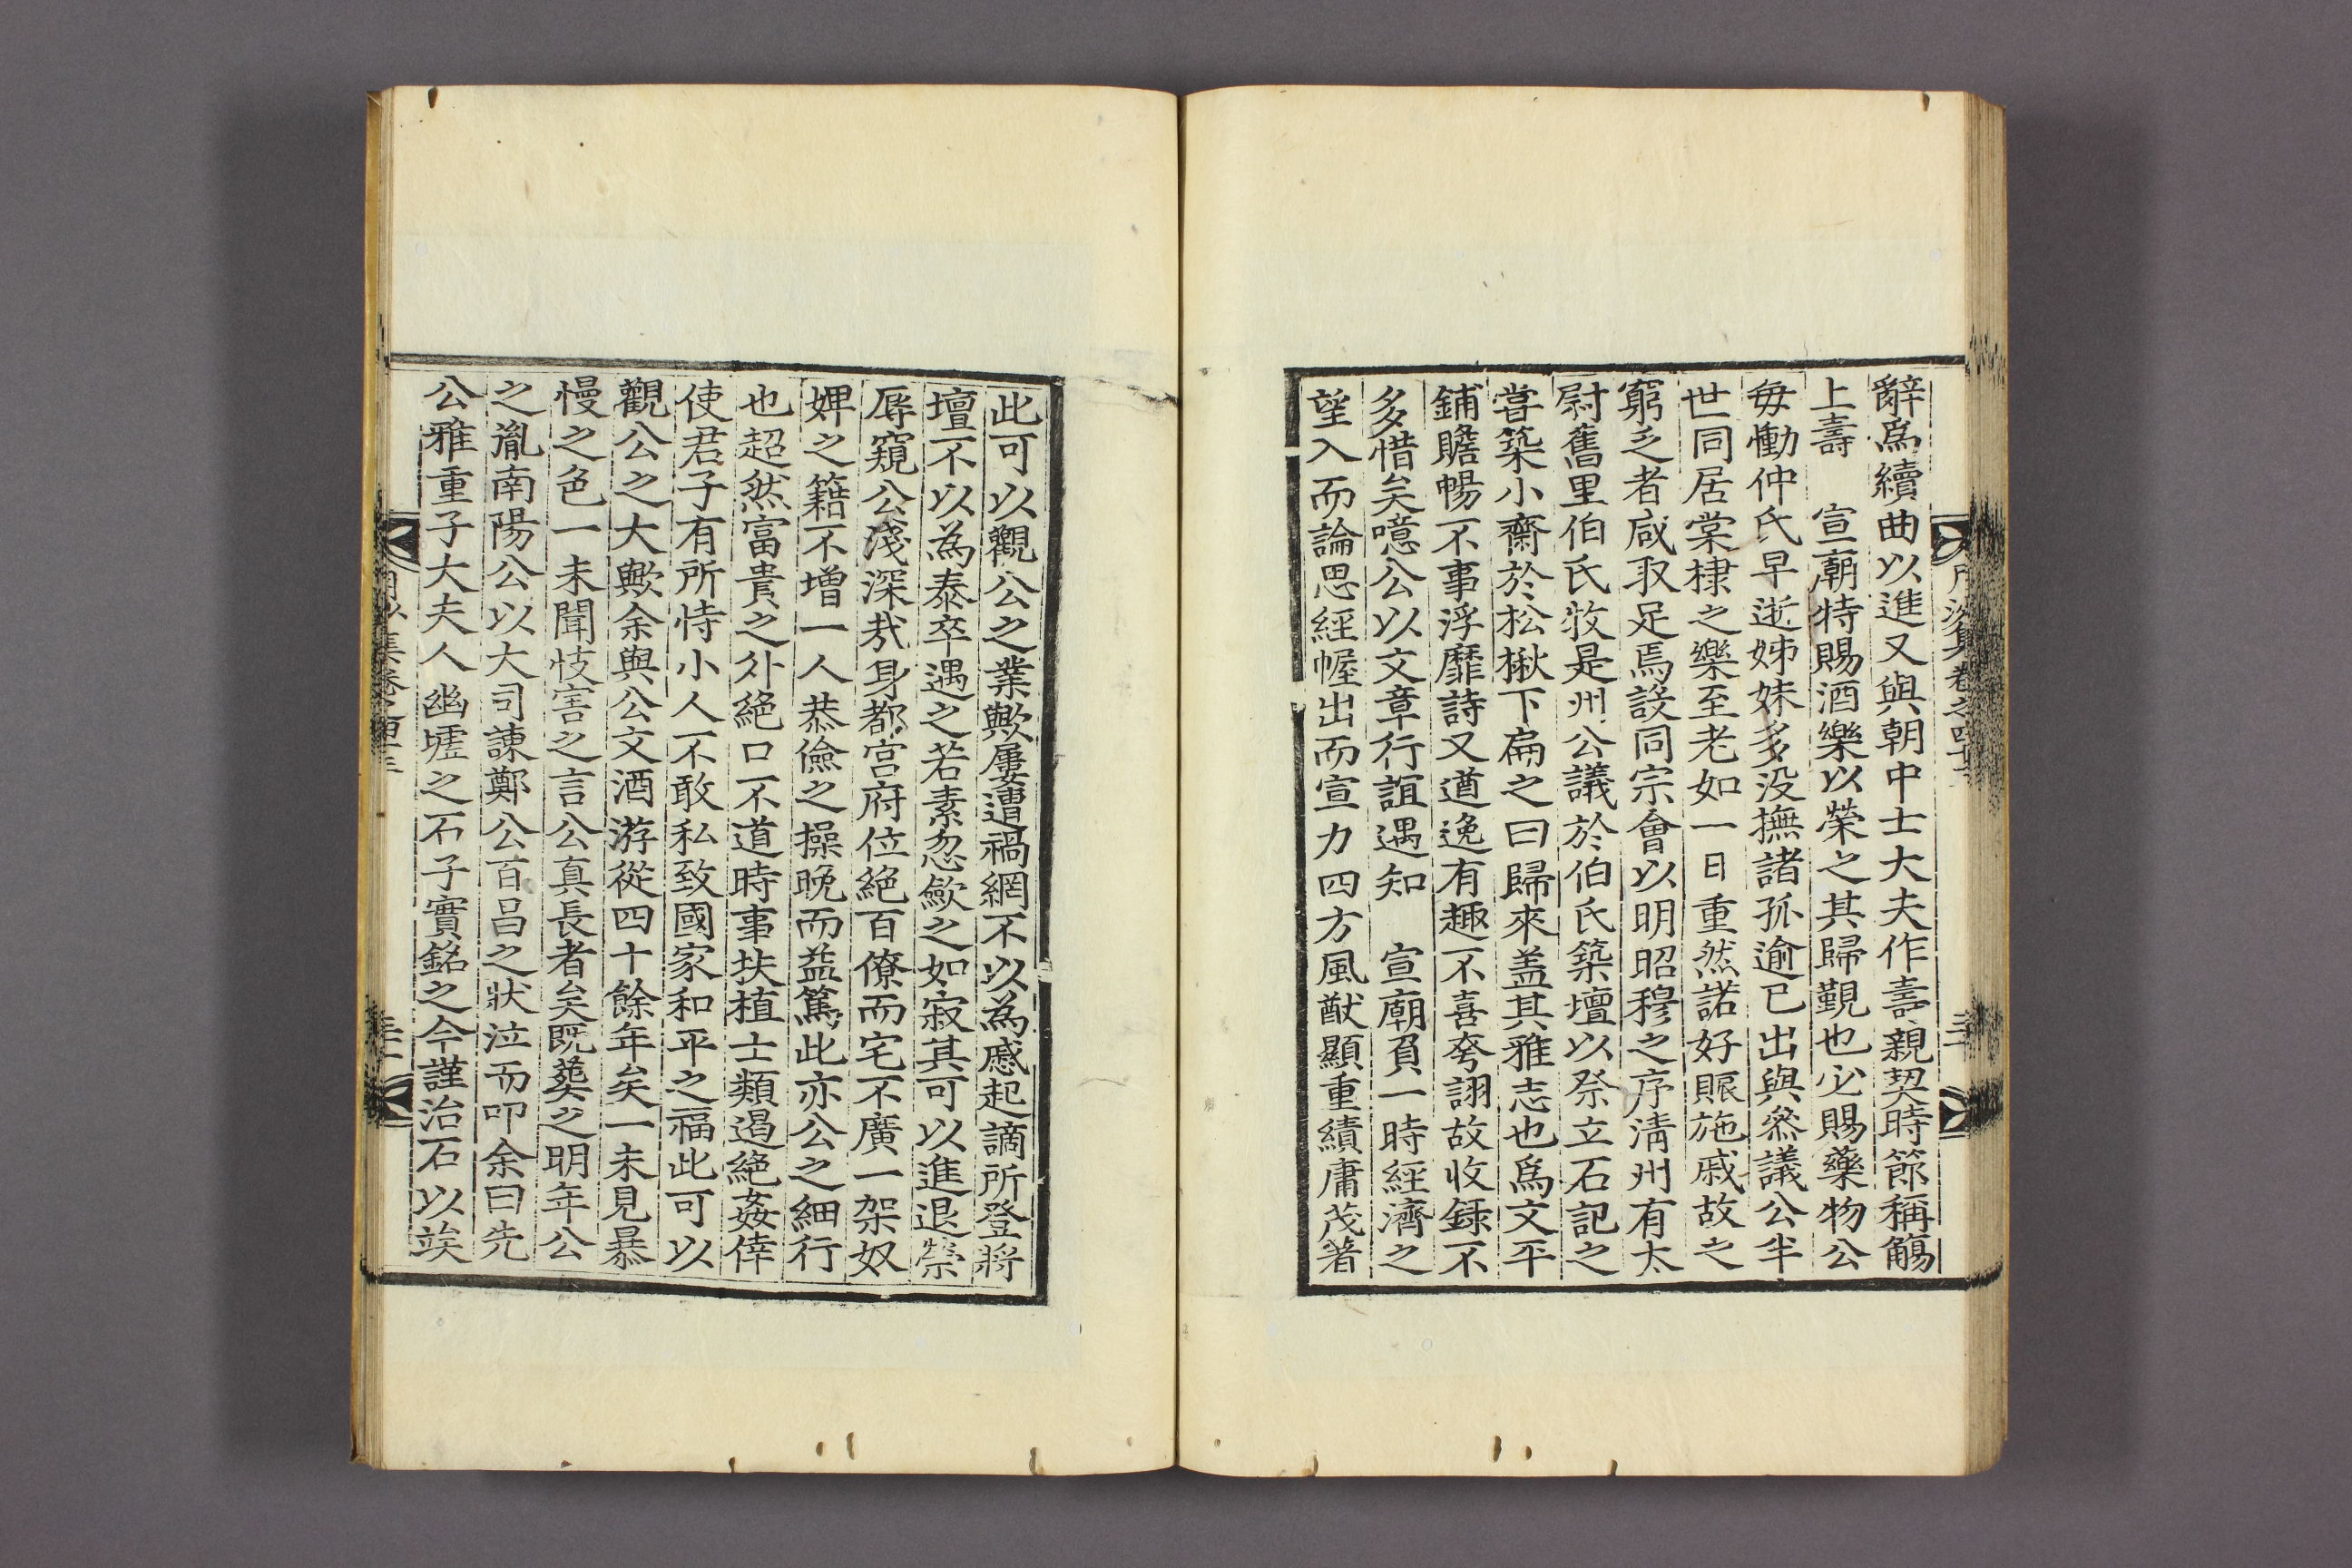 辭爲續曲以進又與朝中士大夫作壽親契時節稱觴
上壽　宣廟特賜酒樂以榮之其歸覲也必賜藥物公
每慟仲氏早逝姊妹多没撫諸孤逾已出與叅議公半
世同居棠棣之樂至老如一日重然諾好賑施戚故之
窮乏者咸取足焉設同宗會以明昭穆之序淸州有太
尉舊里伯氏牧是州公議於伯氏築壇以祭立石記之
嘗築小齋於松楸下扁之曰歸來盖其雅志也爲文平
鋪贍暢不事浮靡詩又遒逸有趣不喜夸詡故收錄不
多惜矣噫公以文章行誼遇知　宣廟負一時經濟之
望入而論思經幄出而宣力四方風猷顯重績庸茂著
此可以觀公之業歟屢遭禍網不以為慼起謫所登將
壇不以為泰卒遇之若素忽歛之如寂其可以進退榮
辱窺公淺深㦲身都宮府位絶百僚而宅不廣一架奴
婢之籍不增一人恭儉之操晩而益篤此亦公之細行
也超然富貴之外絶口不道時事扶植士類遏絶姦倖
使君子有所恃小人不敢私致國家和平之福此可以
觀公之大歟余與公文酒游從四十餘年矣一未見暴
慢之色一未聞忮害之言公真長者矣既葬之明年公
之胤南陽公以大司諫鄭公百昌之狀泣而叩余曰先
公雅重子大夫人幽墟之石子實銘之今謹治石以竢